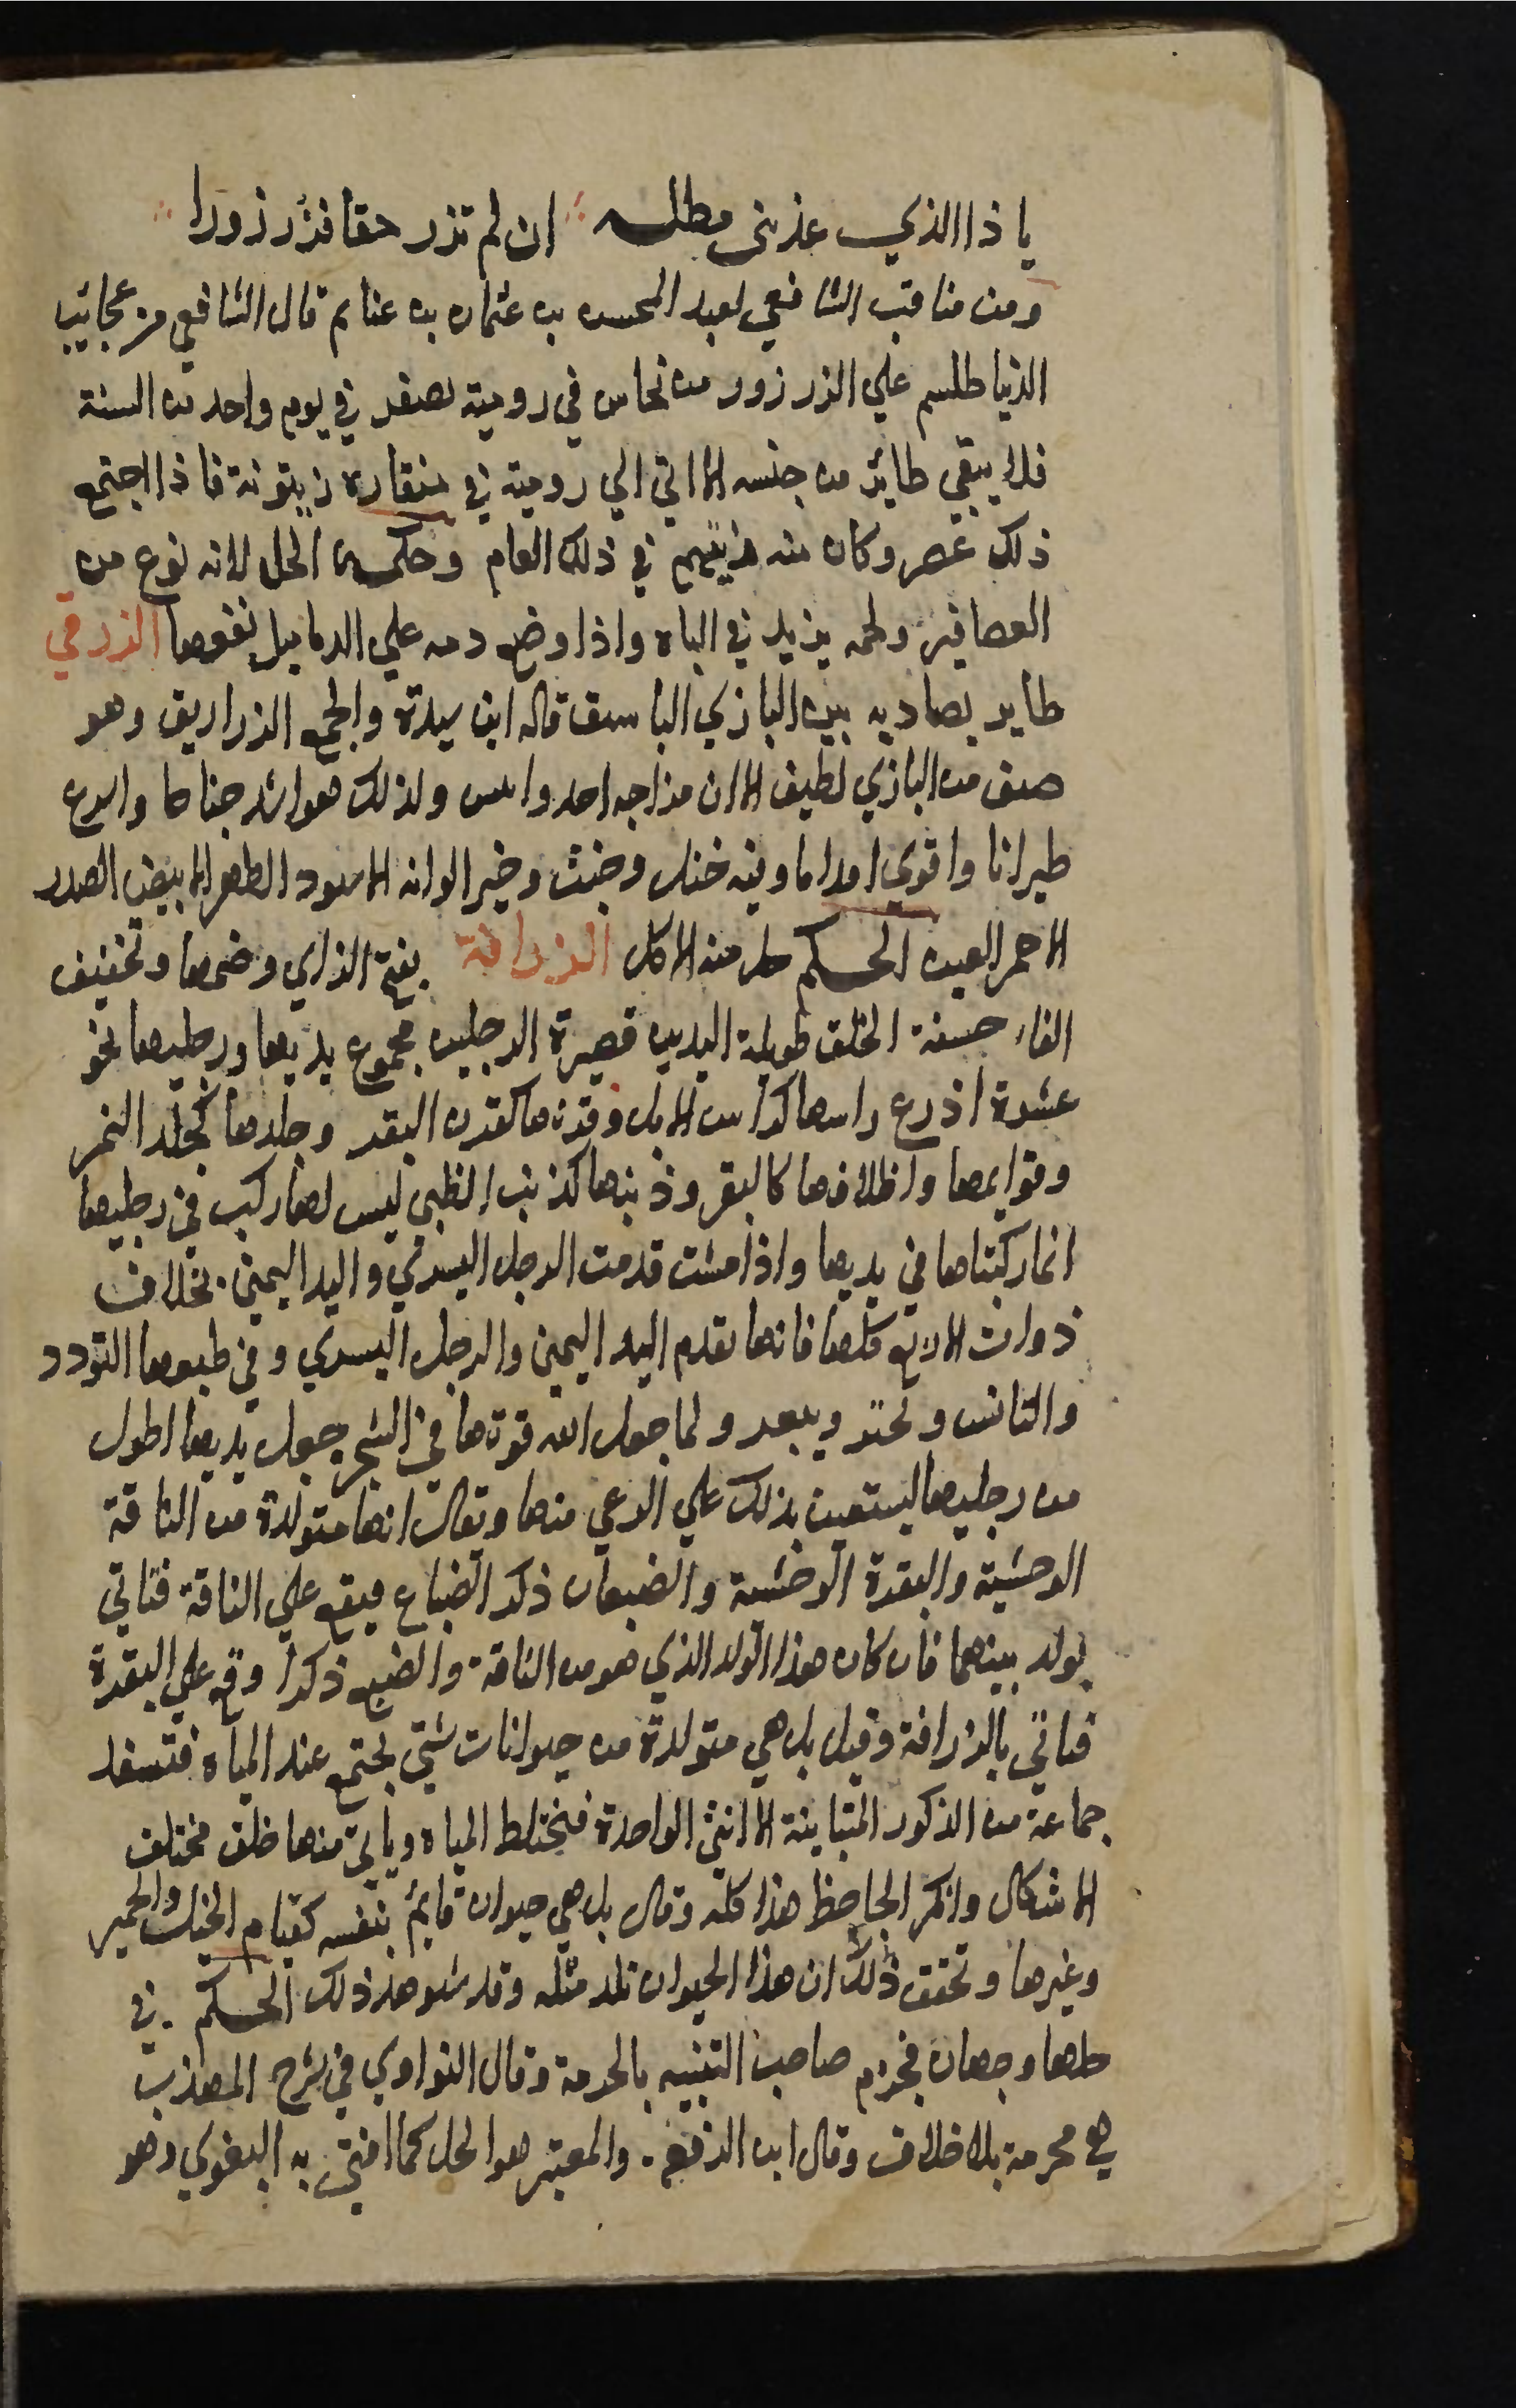 يا ذا الذي عذبني مطله ان لم تزر حقا فزر زورا
ومن مناقب الشافعي لعبد المحسن بن عثمان بن غنايم قال الشافعي من عجايب
الدنيا طلسم علي الزرزور من نحاس في رومية يصفر في يوم واحد من السنة
فلا يبقي طائر من جنسه الا اتي الي رومية في منقاره زيتونة فاذا اجتمع
ذلك عصر وكان منه زيتهم في ذلك العام وحكمه الحل لانه نوع من
العصافير ولحمه يزيد في الباه واذا وضع دمه علي الدماميل نفعها الزرقي
طاير يصاد به بين البازي الباسق قاله ابن سيدة والجمع الزراريق وهو
صنف من البازي لطيف الا ان مزاجه احد وايبس ولذلك هو اشد جناحا واسرع
طيرانا واقوي اقداما وفيه ختل وخبث وخير الوانه الاسود الظهر الابيض الصدر
الاحمر العين الحكم حل منه الاكل الزرافة بفتح الزاي وضمها وتخفيف
الفاء حسنة الخلق طويلة اليدين قصيرة الرجلين مجموع يديها ورجليها نحو
عشرة اذرع راسها كراس الابل وقرنها كقرن البقر وجلدها كجلد النمر
وقوايمها واظلافها كالبقر وذنبها كذنب الظبي ليس لها ركب في رجليها
انما ركبتاها في يديها واذا مشت قدمت الرجل اليسري واليد اليمني بخلاف
ذوات الاربع كلها فانها تقدم اليد اليمني والرجل اليسري وفي طبعها التودد
والتانس وتجتر وتبعر ولما جعل الله قوتها في الشجر جعل يديها اطول
من رجليها ليستعين بذلك علي الرعي منها ويقال انها متولدة من الناقة
الوحشية والبقرة الوحشية والضبعان ذكر الضباع فيقع علي الناقة فتاتي
بولد بينهما فان كان هذا الولد الذي هو من الناقة والضبع ذكرا وقع علي البقرة
فتاتي بالزرافة وقيل بل هي متولدة من حيوانات شتي تجتمع عند المياه فتسفد
جماعة من الذكور المتباينة الانثي الواحدة فيختلط المياه وياتي منها خلق مختلف
الاشكال وانكر الجاحظ هذا كله وقال بل هي حيوان قايم بنفسه كقيام الخيل والحمير
وغيرها وتحقق ذلك ان هذا الحيوان تلد مثله وقد شوهد ذلك الحكم في
حلها وجهان فجزم صاحب التنبيه بالحرمة وقال النواوي في شرح المهذب
هي محرمة بلا خلاف وقال ابن الرفع والمعتبر هو الحل كما افتي به البغوي وهو